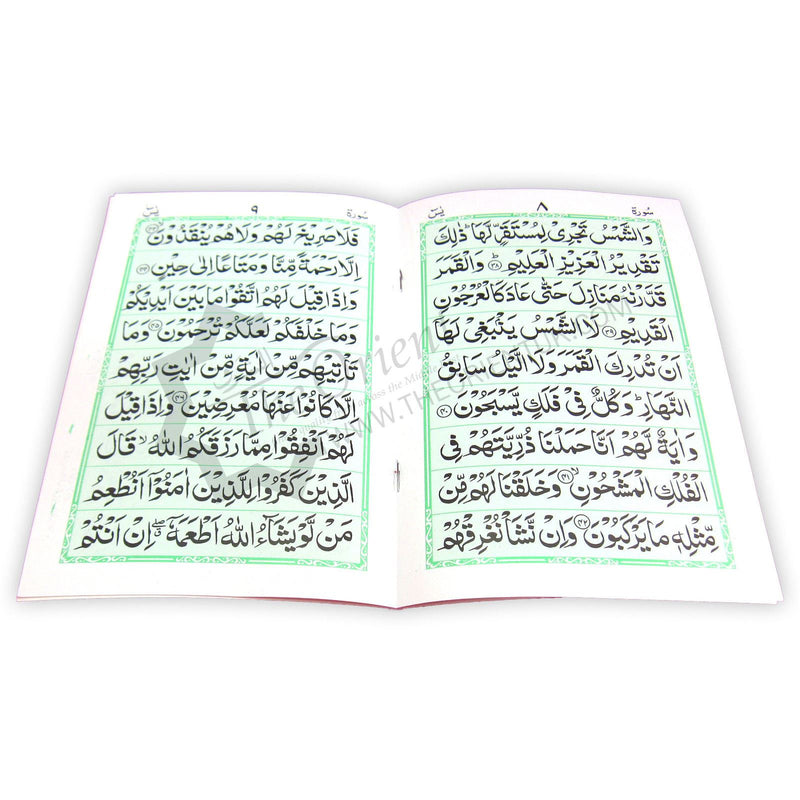 سُورة ٨ يٰسٓ
وَالشَّمْسُ تَجْرِىْ لِمُسْتَقَرٍّ لَّهَا ؕ ذٰلِكَ
تَقْدِيْرُ الْعَزِيْزِ الْعَلِيْمِ ؕ ﴿۳۸﴾ وَالْقَمَرَ
قَدَّرْنٰهُ مَنَازِلَ حَتّٰى عَادَ كَالْعُرْجُوْنِ
الْقَدِيْمِ ﴿۳۹﴾ لَا الشَّمْسُ يَنْۢبَغِىْ لَهَاۤ
اَنْ تُدْرِكَ الْقَمَرَ وَلَا الَّيْلُ سَابِقُ
النَّهَارِ ؕ وَكُلٌّ فِىْ فَلَكٍ يَّسْبَحُوْنَ ﴿۴۰﴾
وَاٰيَةٌ لَّهُمْ اَنَّا حَمَلْنَا ذُرِّيَّتَهُمْ فِى
الْفُلْكِ الْمَشْحُوْنِ ۙ ﴿۴۱﴾ وَخَلَقْنَا لَهُمْ مِّنْ
مِّثْلِهٖ مَا يَرْكَبُوْنَ ﴿۴۲﴾ وَاِنْ نَّشَاْ نُغْرِقْهُمْ
سُورة ٩ يٰسٓ
فَلَا صَرِيْخَ لَهُمْ وَلَا هُمْ يُنْقَذُوْنَ ۙ ﴿۴۳﴾
اِلَّا رَحْمَةً مِّنَّا وَمَتَاعًا اِلٰى حِيْنٍ ﴿۴۴﴾
وَاِذَا قِيْلَ لَهُمُ اتَّقُوْا مَا بَيْنَ اَيْدِيْكُمْ
وَمَا خَلْفَكُمْ لَعَلَّكُمْ تُرْحَمُوْنَ ﴿۴۵﴾ وَمَا
تَاْتِيْهِمْ مِّنْ اٰيَةٍ مِّنْ اٰيٰتِ رَبِّهِمْ
اِلَّا كَانُوْا عَنْهَا مُعْرِضِيْنَ ﴿۴۶﴾ وَاِذَا قِيْلَ
لَهُمْ اَنْفِقُوْا مِمَّا رَزَقَكُمُ اللّٰهُ ۙ قَالَ
الَّذِيْنَ كَفَرُوْا لِلَّذِيْنَ اٰمَنُوْۤا اَنُطْعِمُ
مَنْ لَّوْ يَشَآءُ اللّٰهُ اَطْعَمَهٗۤ ۖ اِنْ اَنْتُمْ
WWW.THEORIENTUK.COM